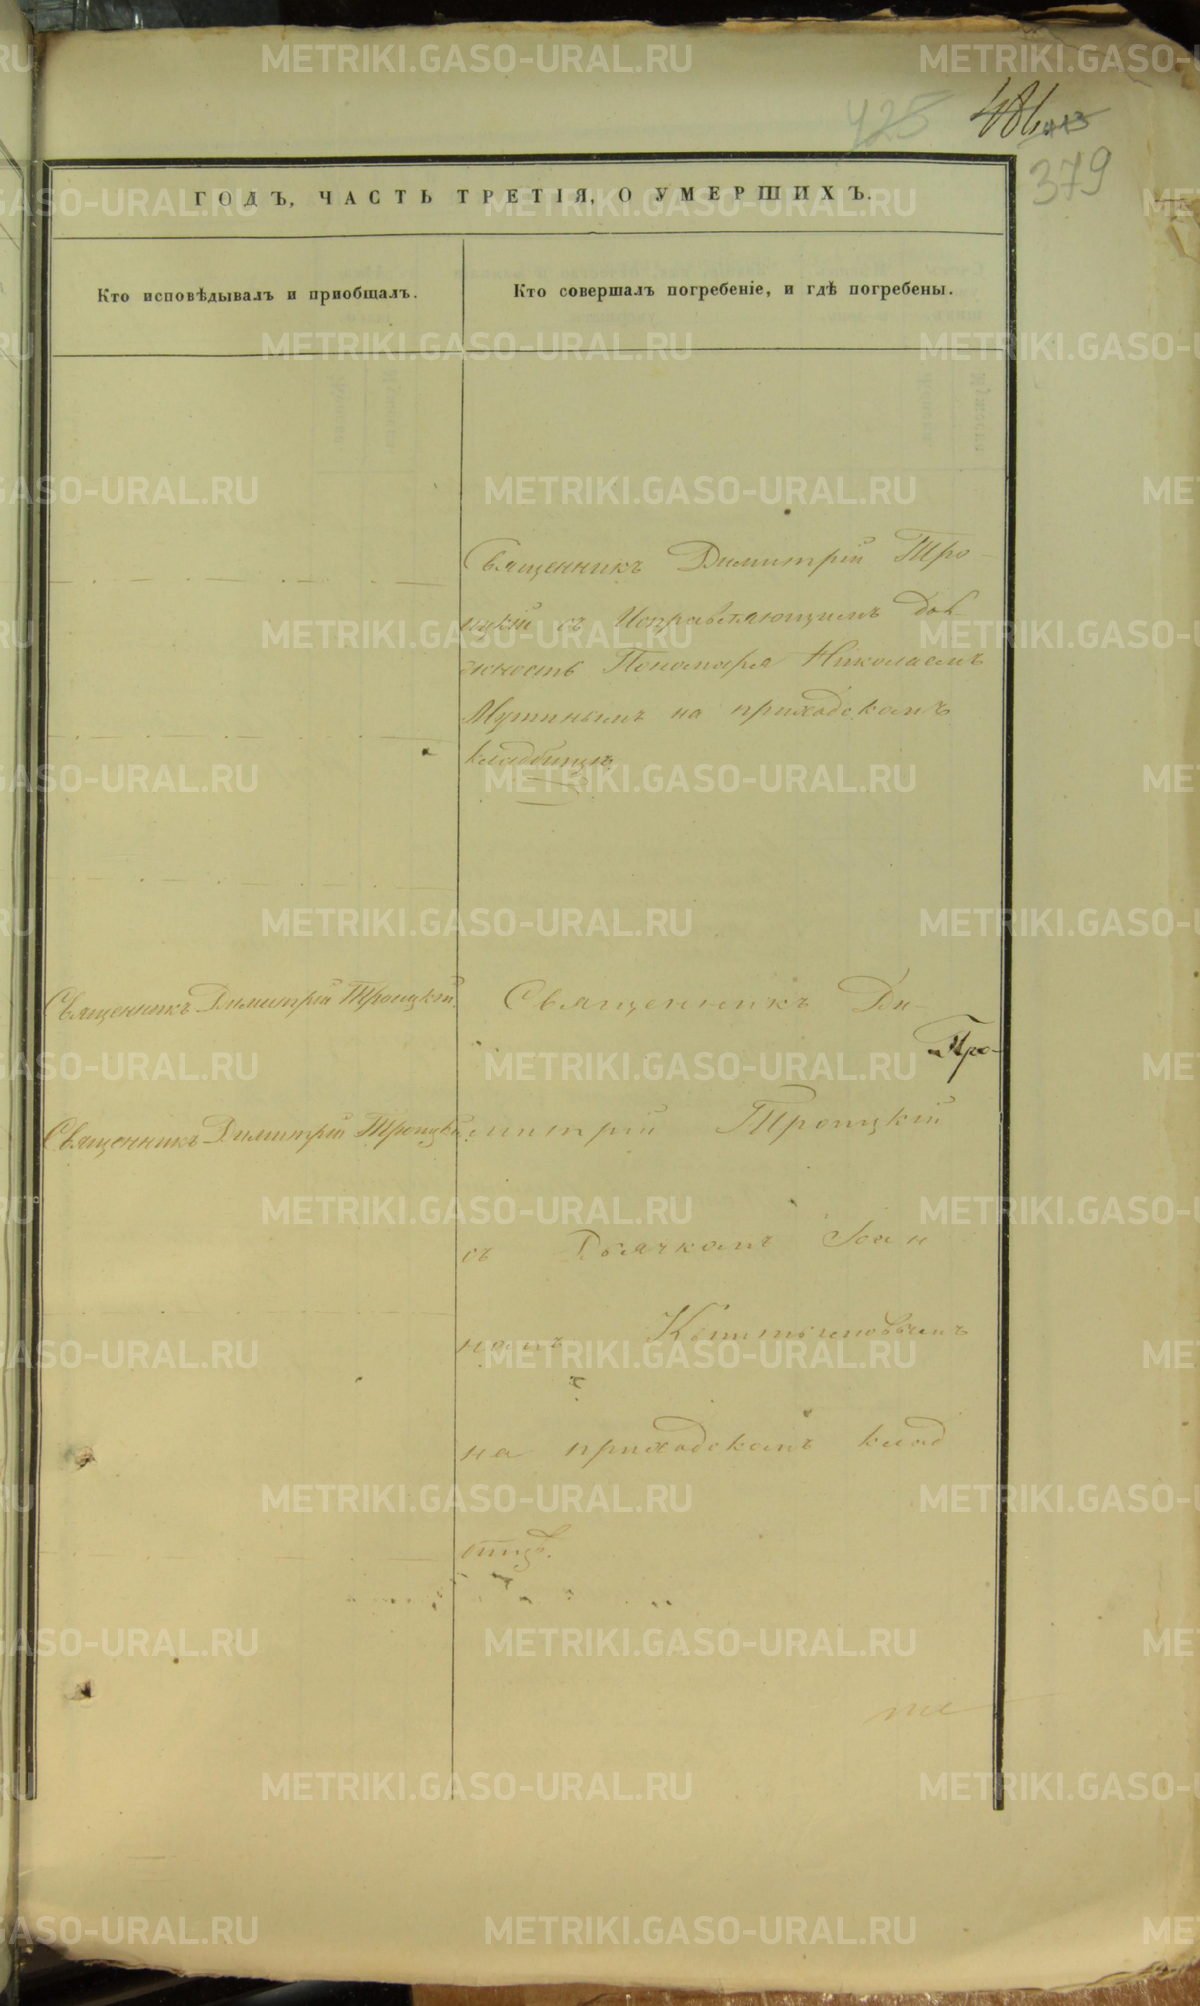 425 486 443
379
ГОДЪ, ЧАСТЬ ТРЕТІЯ, О УМЕРШИХЪ.
Кто исповѣдывалъ и пріобщалъ.
Кто совершалъ погребеніе, и гдѣ погребены.
Священникъ Димитрій Тро-
ицкій съ Исправляющимъ дол
жность Пономаря Николаемъ
на приходскомъ
кладбищѣ
Священникъ Димитрій Троицкій.
Священникъ Димитрій Троицкій.
Священникъ Ди-
Тро-
митрій Троицкій
съ Дьячкомъ Іоан
номъ
на приходскомъ клад
бищѣ.
METRIKI.GASO-URAL.RU